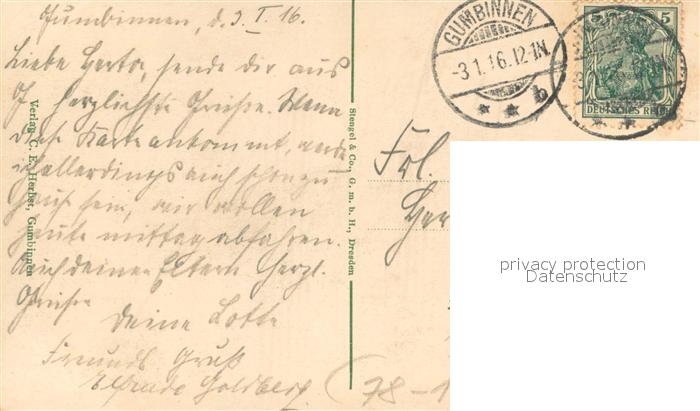 Gumbinnen, d. 3. I. 16.
Liebe Herta, sende dir aus
G. herzlichste Grüße. Wenn
diese Karte ankommt, werde
ich allerdings auch schon zu
Haus sein, wir wollen
heute mittag abfahren.
Auch deinen Eltern herzl.
Grüße
Deine Lotte
Freundl Gruß
Goldberg
Verlag C. E. Herbst, Gumbinnen
Stengel & Co., G. m. b. H., Dresden
GUMBINNEN
-3.1.16.12-1N.
* * b
5 5
DEUTSCHES REICH
Frl.
Her
privacy protection
Datenschutz
(78-1